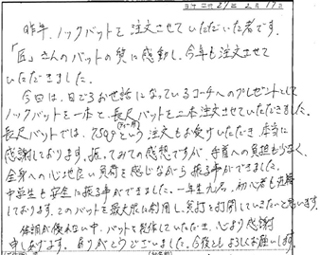 昨年、ノックバットを注文させていただいた者です。
「匠」さんのバットの質に感動し、今年も注文させて
いただきました。
今回は、日ごろお世話になっているコーチへのプレゼントとして
ノックバットを一本と、長尺バットを二本注文させていただきました。
長尺バットでは、750gという注文もお受けいただき本当に
感謝しております。振ってみての感想ですが、手首への負担も少なく、
全身への心地良い負荷を感じながら振る事ができました。
中学生も安全に振る事ができました。一年生九名、初心者も
しております。このバットを最大限に利用し、貧打を打開していきたいと思います。
体調が優れない中、バットを製作していただき、心より感謝
申しあげます。ありがとうございました。今後ともよろしくお願いします。